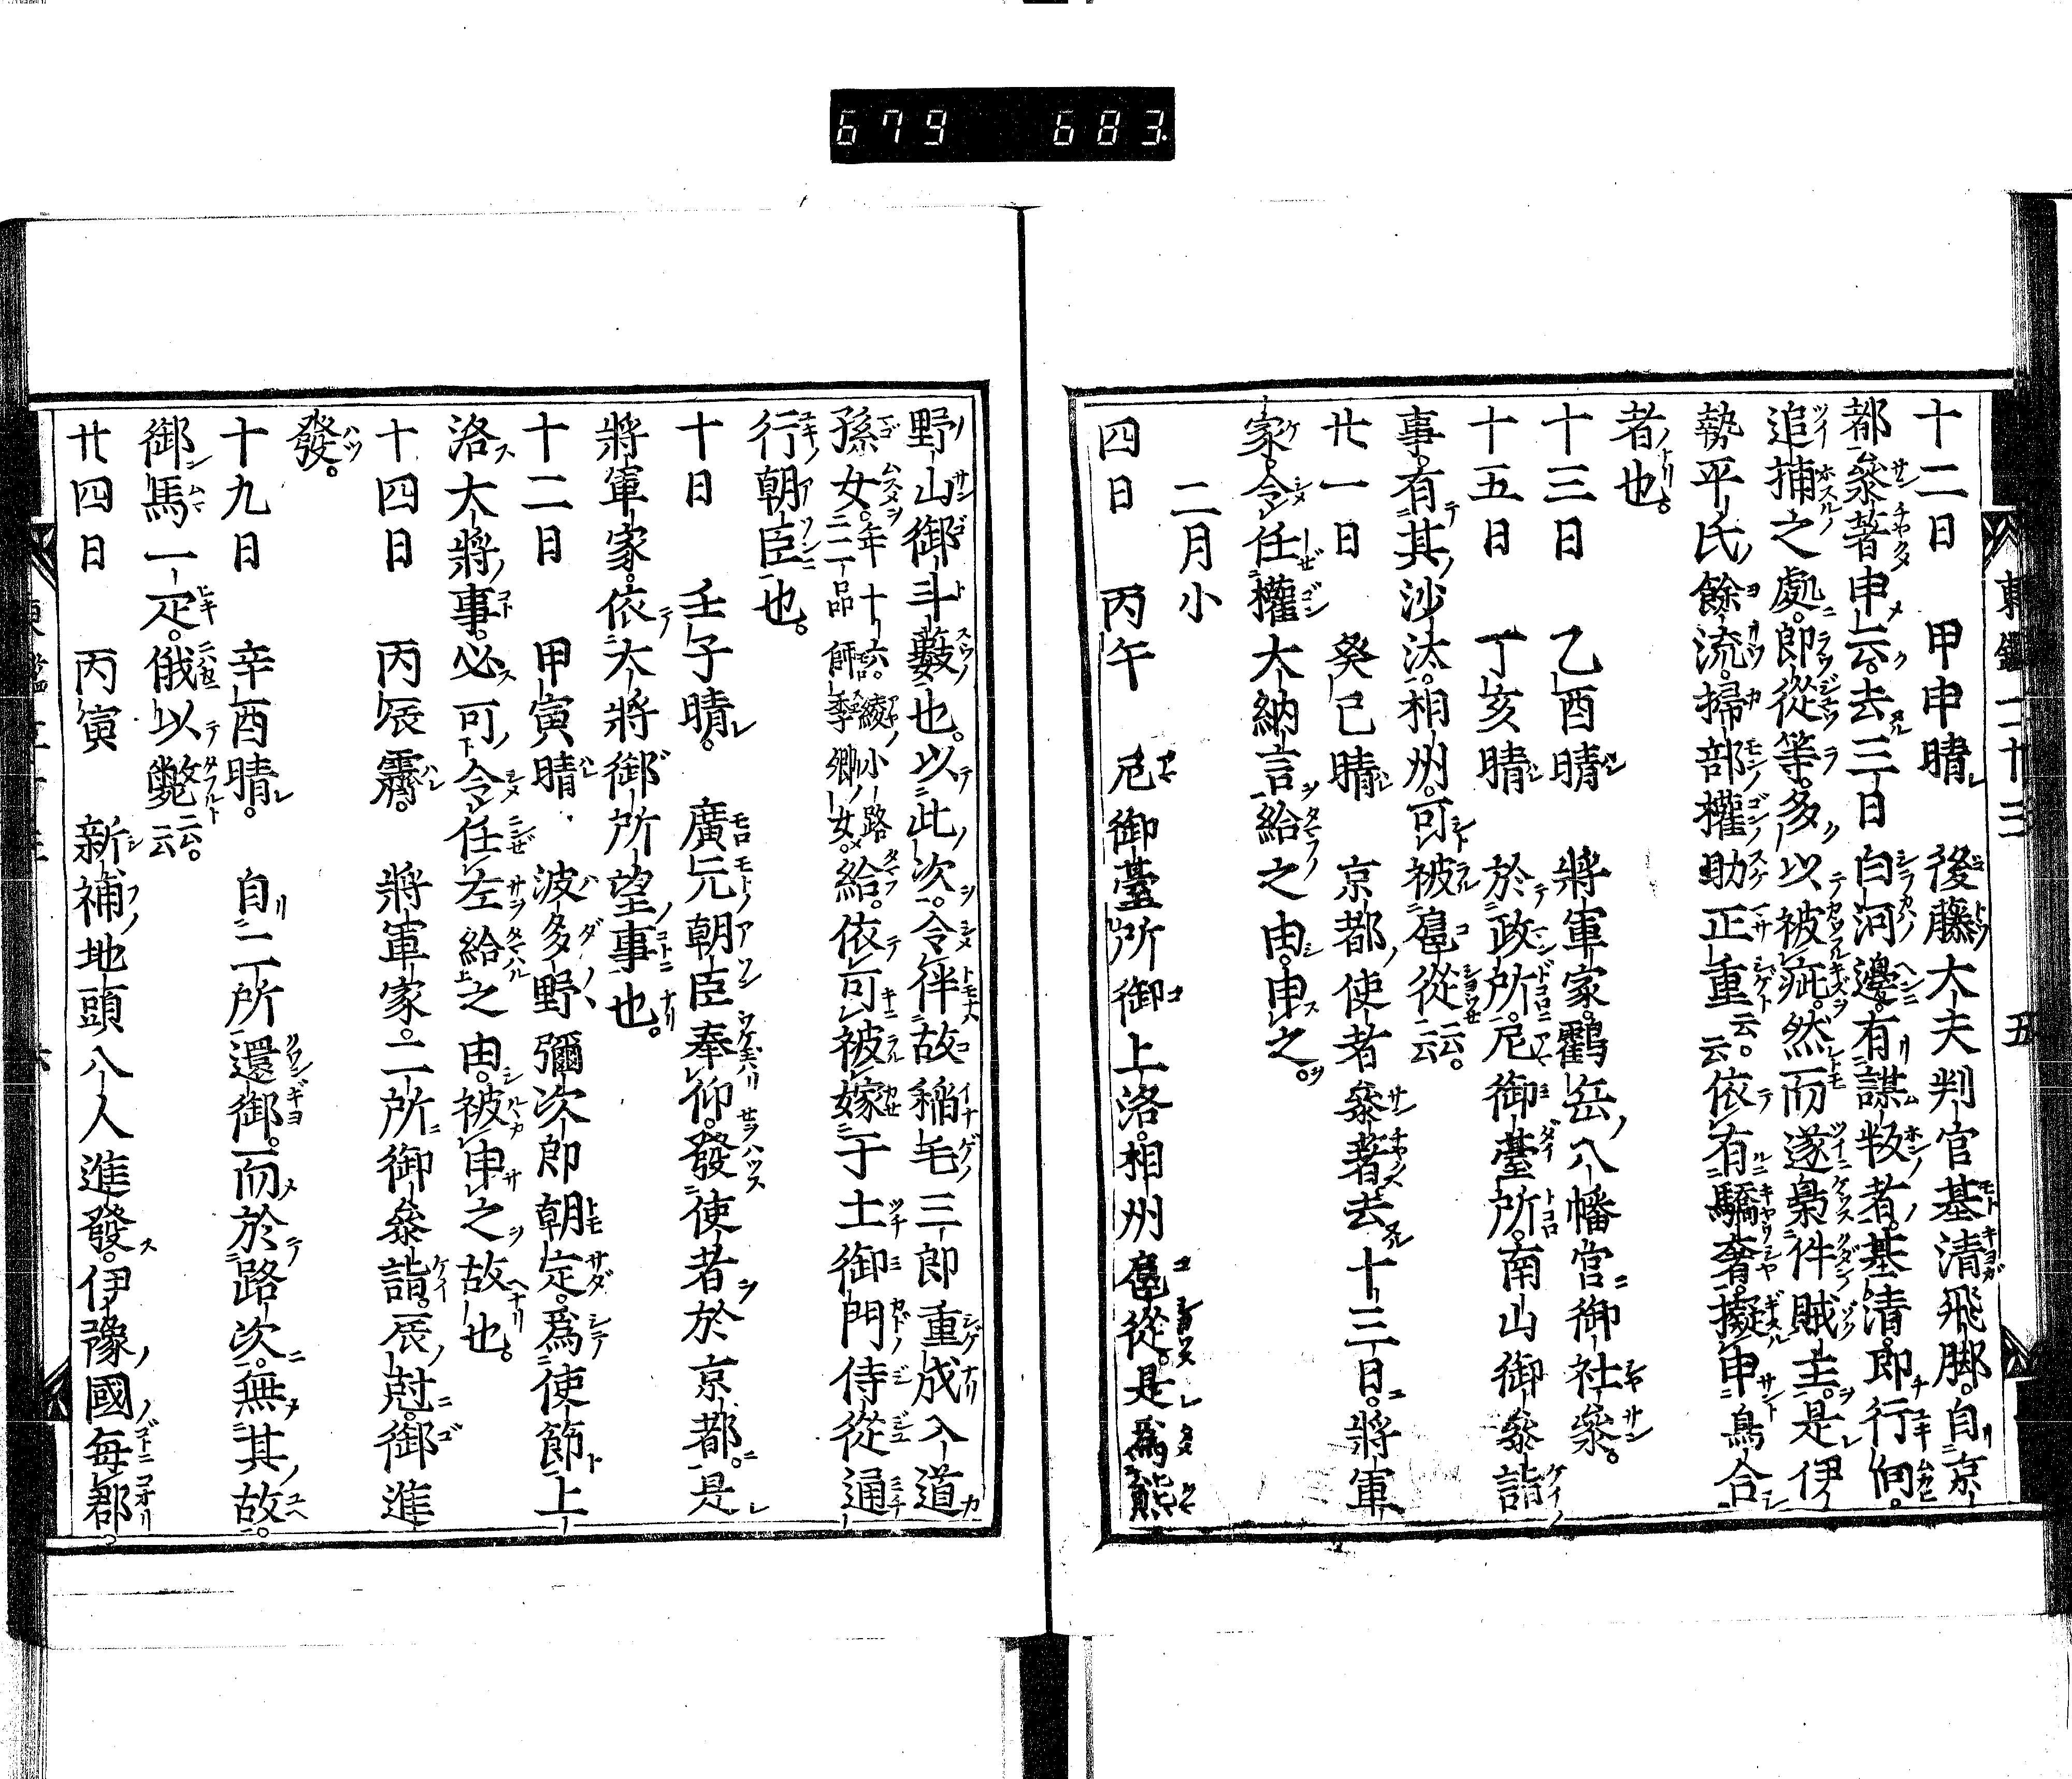 679 683.
十二日 甲申晴 後藤大夫判官基清飛脚。自京
都參著申云。去三日白河邊。有謀叛者。基清。即行向。
追捕之處。即從等。多以被疵。然而遂梟件賊主。是伊
勢平氏餘流。掃部權助正重云云。依有驕奢。擬申鳥合
者也。
十三日 乙酉晴 將軍家。鸖岳八幡宮御社參。
十五日 丁亥晴 於政所。尼御臺所。南山御參詣
事。有其沙汰。相州。可被扈從云云。
廿一日 癸巳晴 京都使者參著。去十三日。將軍
家。令任權大納言給之由。申之。
二月小
四日 丙午 尼御臺所御上洛。相州扈從。是爲熊
野山御斗藪也。以此次。令伴故稲毛三郎重成入道
孫女。年十六。綾小路三二品師季卿女。給。依可被嫁于土御門侍從通
行朝臣也。
十日 壬子晴。 廣元朝臣奉仰。發使者於京都。是
將軍家。依大將御所望事也。
十二日 甲寅晴 波多野彌次郎朝定。爲使節上
洛。大將事。必可令任左給之由。被申之故也。
十四日 丙辰霽。 將軍家。二所御參詣。辰尅。御進
發。
十九日 辛酉晴。 自二所還御。而於路次。無其故。
御馬一疋。俄以斃云云。
廿四日 丙寅 新補地頭八人進發。伊豫國毎郡。
東鑑二十三 五